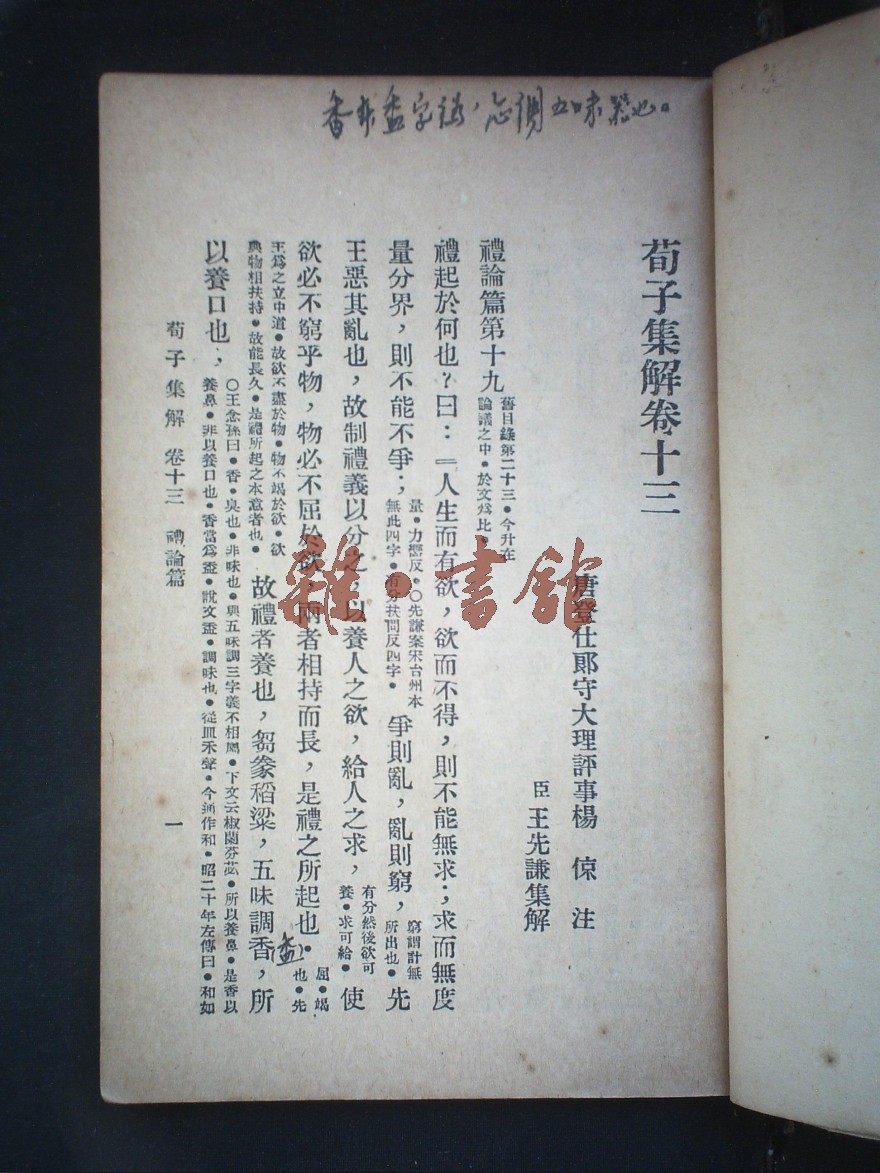 香非盉字譌,
五味器也。
荀子集解卷十三
唐登仕郞守大理評事楊 倞 注
臣 王先謙集解
禮論篇第十九
舊目錄第二十三•今升在
論議之中•於文爲比•
禮起於何也?曰:人生而有欲,欲而不得,則不能無求;求而無度
量分界,則不能不爭;
量•力嚮反•○先謙案宋台州本
無此四字•有分扶問反四字•
爭則亂,亂則窮,
窮謂計無
所出也•
先
王惡其亂也,故制禮義以分之,以養人之欲,給人之求,
有分然後欲可
養•求可給•
使
欲必不窮乎物,物必不屈於欲,兩者相持而長,是禮之所起也•
屈•竭
也•先
王爲之立中道•故欲不盡於物•物不竭於欲•欲
與物相扶持•故能長久•是禮所起之本意者也•
故禮者養也,芻豢稻粱,五味調香(盉),所
以養口也,
○王念孫曰•香•臭也•非味也•與五味調三字義不相屬•下文云椒蘭芬苾•所以養鼻•是香以
養鼻•非以養口也•香當爲盉•說文盉•調味也•從皿禾聲•今通作和•昭二十年左傳曰•和如
荀子集解 卷十三 禮論篇
一
雜•書館